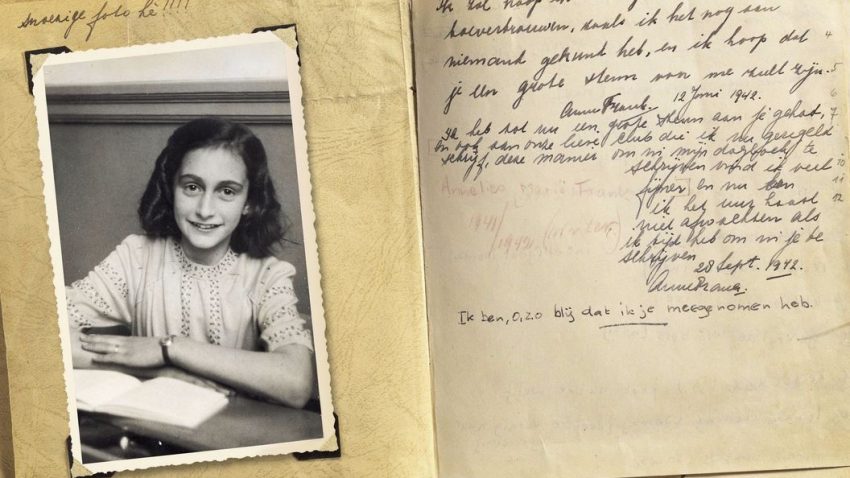 snoezige foto hè!!!!
Ik zal hoop ik
toevertrouwen, zoals ik het nog aan
niemand gekund heb, en ik hoop dat
je een grote steun voor me zult zijn.
Anne Frank. 12 Juni 1942.
Ik heb tot nu een grote steun aan je gehad,
en ook aan onze lieve club die ik nu geregeld
schrijf, deze manier om in mijn dagboek te
schrijven vind ik veel
fijner en nu kan
ik het uur haast
niet afwachten als
ik tijd heb om in je te
schrijven.
28 Sept. 1942.
Anne Frank.
Ik ben, o, zo blij dat ik je meegenomen heb.
4
5
6
7
10
11
12
1941/
1942